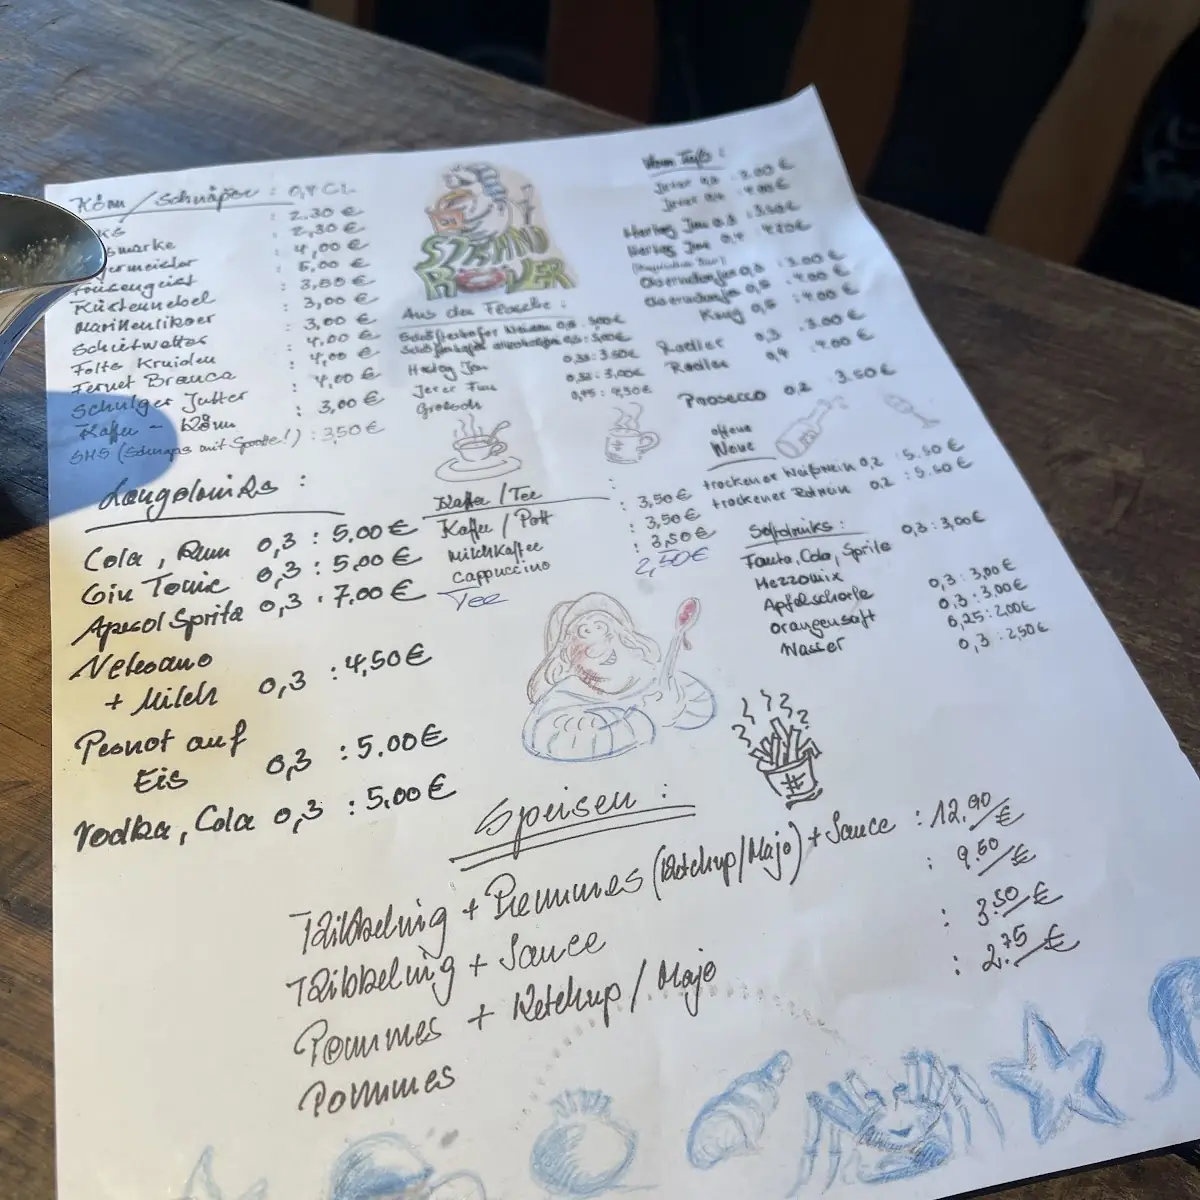 Köm / Schnäpse : 0,4 CL
: 2.30 €
: 2,30 €
: 4,00 €
: 5,00 €
Küstennebel : 3,50 €
Marinenlikoer : 3,00 €
Schietwetter : 3,00 €
Folts Kruiden : 4,00 €
Fernet Branca : 4,00 €
: 4,00 €
Kaffee - Köm : 3,00 €
SMS (Schnaps mit Sprotte!) : 3,50 €
STRAND
RÖVER
Aus der Flasche :
Schöfferhofer Weizen 0,5
Schöfferhofer alkoholfrei 0,5
0,33 : 3.50 €
Jever Fun 0,33 : 3,00 €
Grolsch 0,45 : 4,50 €
Vom Faß :
Jever 0,3 : 3.00 €
Jever 0,4 : 4.00 €
0,3 : 3.50 €
0,4
Krug 0,5 : 4.00 €
Radler 0,3 : 3.00 €
Radler 0,4 : 4.00 €
Prosecco 0,2 : 3.50 €
offene
Weine
trockener Weißwein 0,2 : 5.50 €
trockener Rotwein 0,2 : 5.50 €
Longdrinks :
Cola, Rum 0,3 : 5,00 €
Gin Tonic 0,3 : 5,00 €
Aperol Spritz 0,3 : 7,00 €
+ Milch 0,3 : 4,50 €
Pernot auf
Eis 0,3 : 5.00 €
Vodka, Cola 0,3 : 5,00 €
Kaffee / Tee :
Kaffee / Pott : 3,50 €
Milchkaffee : 3,50 €
Cappuccino : 3,50 €
Tee 2,50 €
Softdrinks :
Fanta, Cola, Sprite 0,3 : 3,00 €
Mezzomix
Apfelschorle 0,3 : 3,00 €
Orangensaft 0,3 : 3,00 €
Wasser 0,25 : 2,00 €
0,3 : 2,50 €
Speisen :
Kibbeling + Pommes (Ketchup/Majo) + Sauce : 12.90/€
Kibbeling + Sauce : 9.50/€
Pommes + Ketchup / Majo : 3.50/€
Pommes : 2.75/€